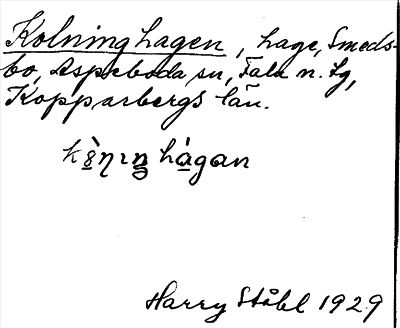 Kolninghagen, hage, Smeds-
bo, Aspeboda sn, Falu n. tg,
Kopparbergs län.
Harry Ståbl 1929